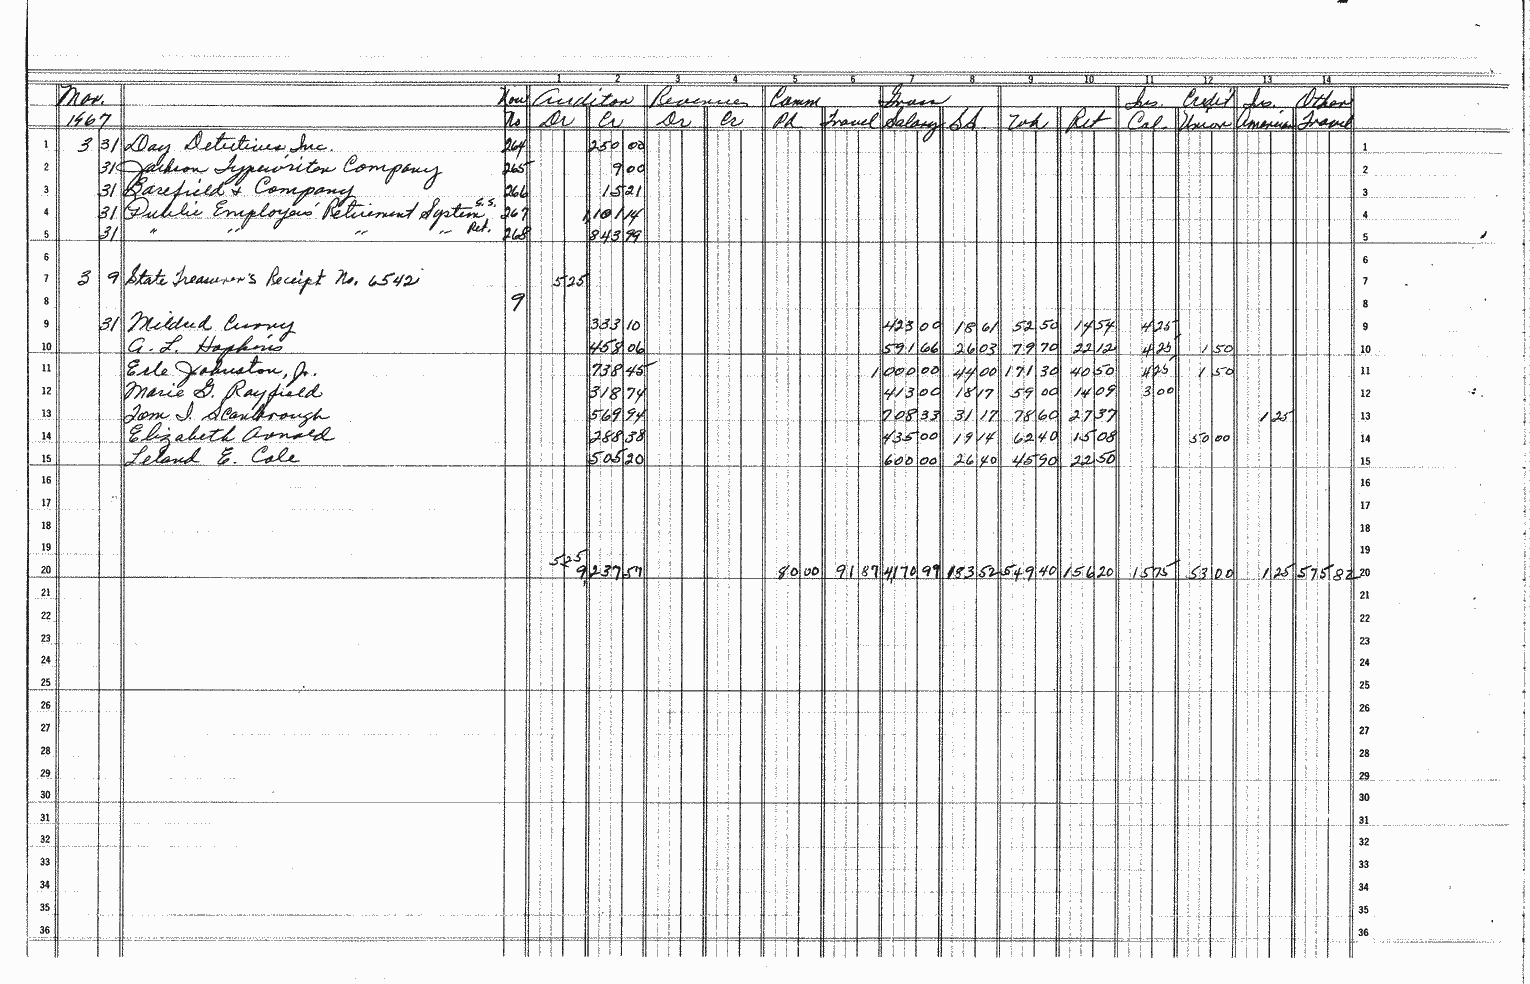 1 2 3 4 5 6 7 8 9 10 11 12 13 14
Mar. Auditor Revenues Comm Gross Ins. Credit Ins. Other
1967 No Dr Cr Dr Cr Pd. Travel Salary S.S. Wh Ret Cal. Union American Travel
1 3 31 Day Detectives Inc. 264 250 00 1
2 31 Jackson Typewriter Company 265 9 00 2
3 31 Barefield & Company 266 15 21 3
4 31 Public Employees' Retirement System S.S. 267 1,101 14 4
5 31 " " " " Ret. 268 843 99 5
6 6
7 3 9 State Treasurer's Receipt No. 6542 5 25 7
8 9 8
9 31 Mildred Curry 333 10 423 00 18 61 52 50 14 54 4 25 9
10 A. L. Hopkins 458 06 591 66 26 03 79 70 22 12 4 25 1 50 10
11 Erle Johnston, Jr. 738 45 1 000 00 44 00 171 30 40 50 4 25 1 50 11
12 Marie G. Rayfield 318 74 413 00 18 17 59 00 14 09 3 00 12
13 Tom J. Scarbrough 569 94 708 33 31 17 78 60 27 37 1 25 13
14 Elizabeth Arnold 288 38 435 00 19 14 62 40 15 08 50 00 14
15 Leland E. Cole 505 20 600 00 26 40 45 90 22 50 15
16 16
17 17
18 18
19 19
5 25
20 9,237 57 80 00 91 87 4170 99 183 52 549 40 156 20 15 75 53 00 1 25 575 82 20
21 21
22 22
23 23
24 24
25 25
26 26
27 27
28 28
29 29
30 30
31 31
32 32
33 33
34 34
35 35
36 36